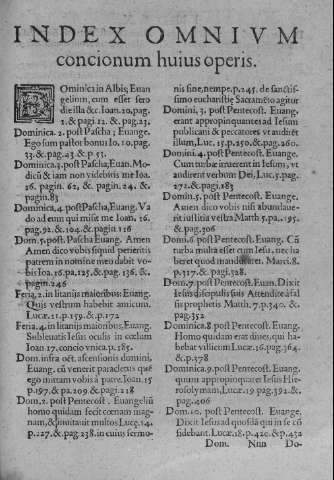 INDEX OMNIVM
concionum huius operis.
Dominica in Albis; Euan
gelium, cum esset sero
die illa &c. Ioan. 20. pag.
1. & pagi. 12. & pag. 23.
Dominica. 2. post Pascha; Euange.
Ego sum pastor bonus Io. 10. pag.
33. & pag. 43 & p. 53.
Dominica. 3. post Pascha; Euan. Mo-
dicũ & iam non videbitis me Ioa.
16. pagin. 62. & pagin. 24. &
pagin. 83
Dominica. 4. post Pascha, Euang. Va
do ad eum qui misit me Ioan. 16.
pag. 92. & 104. & pagin 116
Dom. 5. post Pascha Euang. Amen
Amen dico vobis siquid petieritis
patrem in nomine meo dabit vo-
bis Ioa. 16. pa. 125. & pag. 136. &
pagin. 246
Feria. 2. in litanijs maioribus; Euang.
Quis vestrum habebit amicum.
Lucæ 11. p. 159. & p. 172
Feria. 4. in litanijs maioribus; Euang.
Subleuatis Iesus oculis in cœlum
Ioan. 17. concio vnica p. 185.
Dom. infra oct. ascensionis domini,
Euang. cũ venerit paracletus quẽ
ego mittam vobis à patre. Ioan. 15
p. 197. & pa. 209. & pagi. 218
Dom. 2. post Pentecost. Euangeliũ
homo quidam fecit cœnam mag-
nam, & inuitauit multos Lucæ. 14.
p. 227. & pag. 238. in cuius sermo-
nis fine, nempe. p. 245. de sanctis-
simo eucharistiæ Sacramẽto agitur
Domini. 3. post Pentecost. Euang.
erant appropinquantes ad Iesum
publicani & peccatores vt audirẽt
illum, Luc. 15. p. 250. & pag. 260.
Domini. 4. post Pentecost. Euang.
Cum turbæ irruerent in Iesum, vt
audirent verbum Dei, Luc. 5. pag.
272. & pagi. 283
Domin. 5. post Pentecost. Euang.
Amen dico vobis nisi abundaue-
rit iustitia vestra Matth. 5. pa. 195.
& pag. 306
Dom. 6. post Pentecost. Euang. Cũ
turba multa esset cum Iesu, nec ha
beret quod manducaret. Marci. 8.
p. 317. & pagi. 328.
Dom. 7. post Pentecost. Euan. Dixit
Iesus discipulis suis Attendite à fal
sis prophetis Matth. 7. p. 340. &
pag. 352
Dominica. 8. post Pentecost. Euang.
Homo quidam erat diues, qui ha-
bebat villicum Lucæ. 16. pag. 364.
& p. 378
Dominica. 9. post Pentecost. Euang.
quum appropinquaret Iesus Hie-
rosolymam, Lucæ. 19. pag. 392. &
pag. 406
Dom. 10. post Pentecost. Euange.
Dixit Iesus ad quosdã qui in se cõ
fidebant. Lucæ. 18. p. 420. & p. 432
Dom. Nun Do-